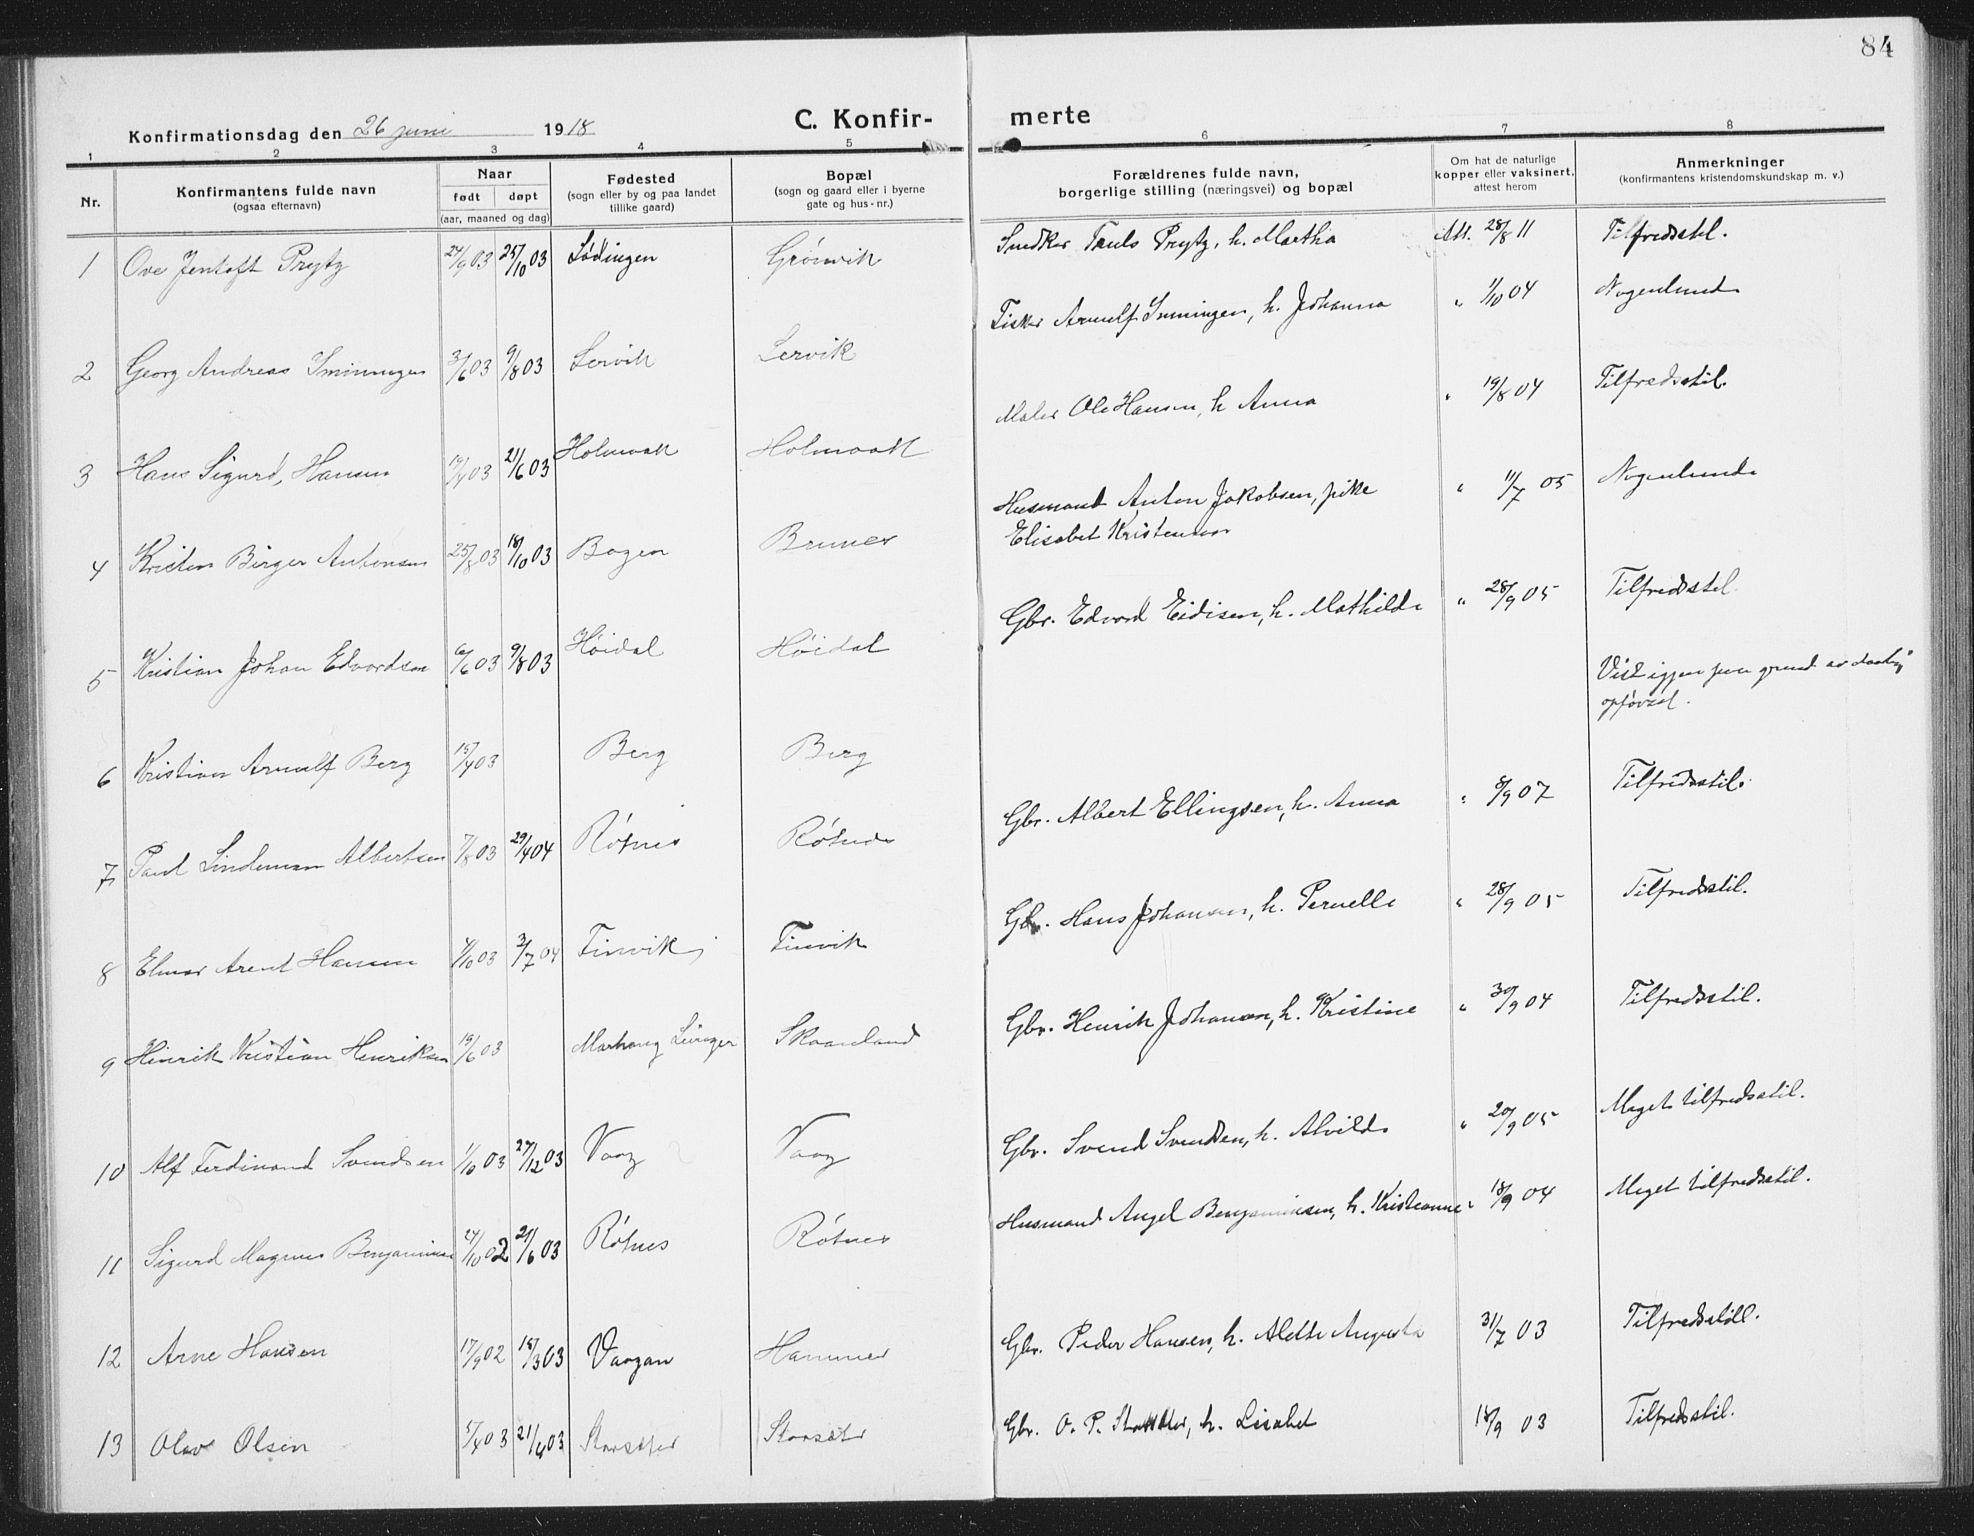 84
Konfirmationsdag den 26 juni 1918
C. Konfirmerte
1 2 3 4 5 6 7 8
Nr.
Konfirmantens fulde navn
(ogsaa efternavn)
Naar
født døpt
(aar, maaned og dag)
Fødested
(sogn eller by og paa landet
tillike gaard)
Bopæl
(sogn og gaard eller i byerne
gate og hus-nr.)
Forældrenes fulde navn,
borgerlige stilling (næringsvei) og bopæl
Om hat de naturlige
kopper eller vaksinert,
attest herom
Anmerkninger
(konfirmantens kristendomskundskap m. v.)
1 Ove Jentoft Prytz 24/9 03 25/10 03 Lødingen Grönvik
Snedker Prytz, h. Martha Att. 28/8 11 Tilfredsstil.
2 Georg Andreas 3/6 03 9/8 03 Lervik Lervik
Fisker Arnulf h. Johanna " 1/10 04 Nogenlunde
3 Hans Sigurd, Hansen 19/4 03 21/6 03 Holmvaak Holmvaak
Maler Ole Hansen, h Anna " 19/8 04 Tilfredsstil.
4 Kristen Birger Antonsen 25/8 03 18/10 03 Bogen Bruner
Husmand Anton Jakobsen, pike
Elisabet Kristensen " 11/7 05 Nogenlunde
5 Kristian Johan Edvardsen 6/6 03 9/8 03 Høidal Høidal
Gbr. Edvard Eidisen, h. Mathilde " 28/9 05 Tilfredsstil.
6 Kristian Arnulf Berg 15/4 03 Berg Berg
Vist igjen paa grund av daarlig
opførsel.
7 Paul Lindeman Albertsen 7/8 03 29/4 04 Røtnes Røtnes
Gbr. Albert Ellingsen, h. Anna " 8/9 07 Tilfredsstil.
8 Elmar Arent Hansen 4/10 03 3/7 04 Finvik Finvik
Gbr. Hans Johansen, h. Pernelle " 28/9 05 Tilfredsstil.
9 Hinrik Kristian Henriksen 19/6 03 Skaanland
Gbr. Henrik Johansen, h. Kristine " 30/9 04 Tilfredsstil.
10 Alf Ferdinand Svendsen 1/10 03 27/12 03 Vaag Vaag
Gbr. Svend Svendsen, h. Alvilde " 20/9 05 Meget tilfredsstil.
11 Sigurd Magnus Benjaminsen 24/10 02 21/6 03 Røtnes Røtnes
Husmand Angel Benjaminsen, h. Kristianne " 18/9 04 Meget tilfredsstil.
12 Arne Hansen 17/9 02 15/3 03 Vaagan Hammer
Gbr. Peder Hansen, h. Alette Augusta 31/7 03 Tilfredsstill.
13 Olav Olsen 5/4 03 21/6 03 Storsæter Storsæter
Gbr. O. P. h. Lisabet 18/9 03 Tilfredsstil.